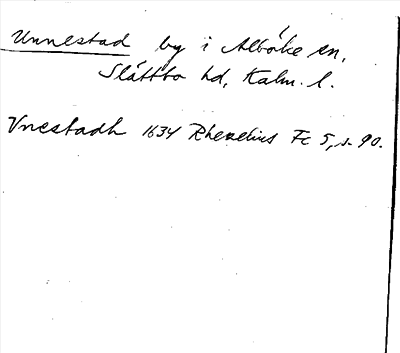 Unnestad by i Alböke sn,
Slättbo hd, Kalm. l.
Vnestadh 1634 Rhezelius Fc 5, s. 90.